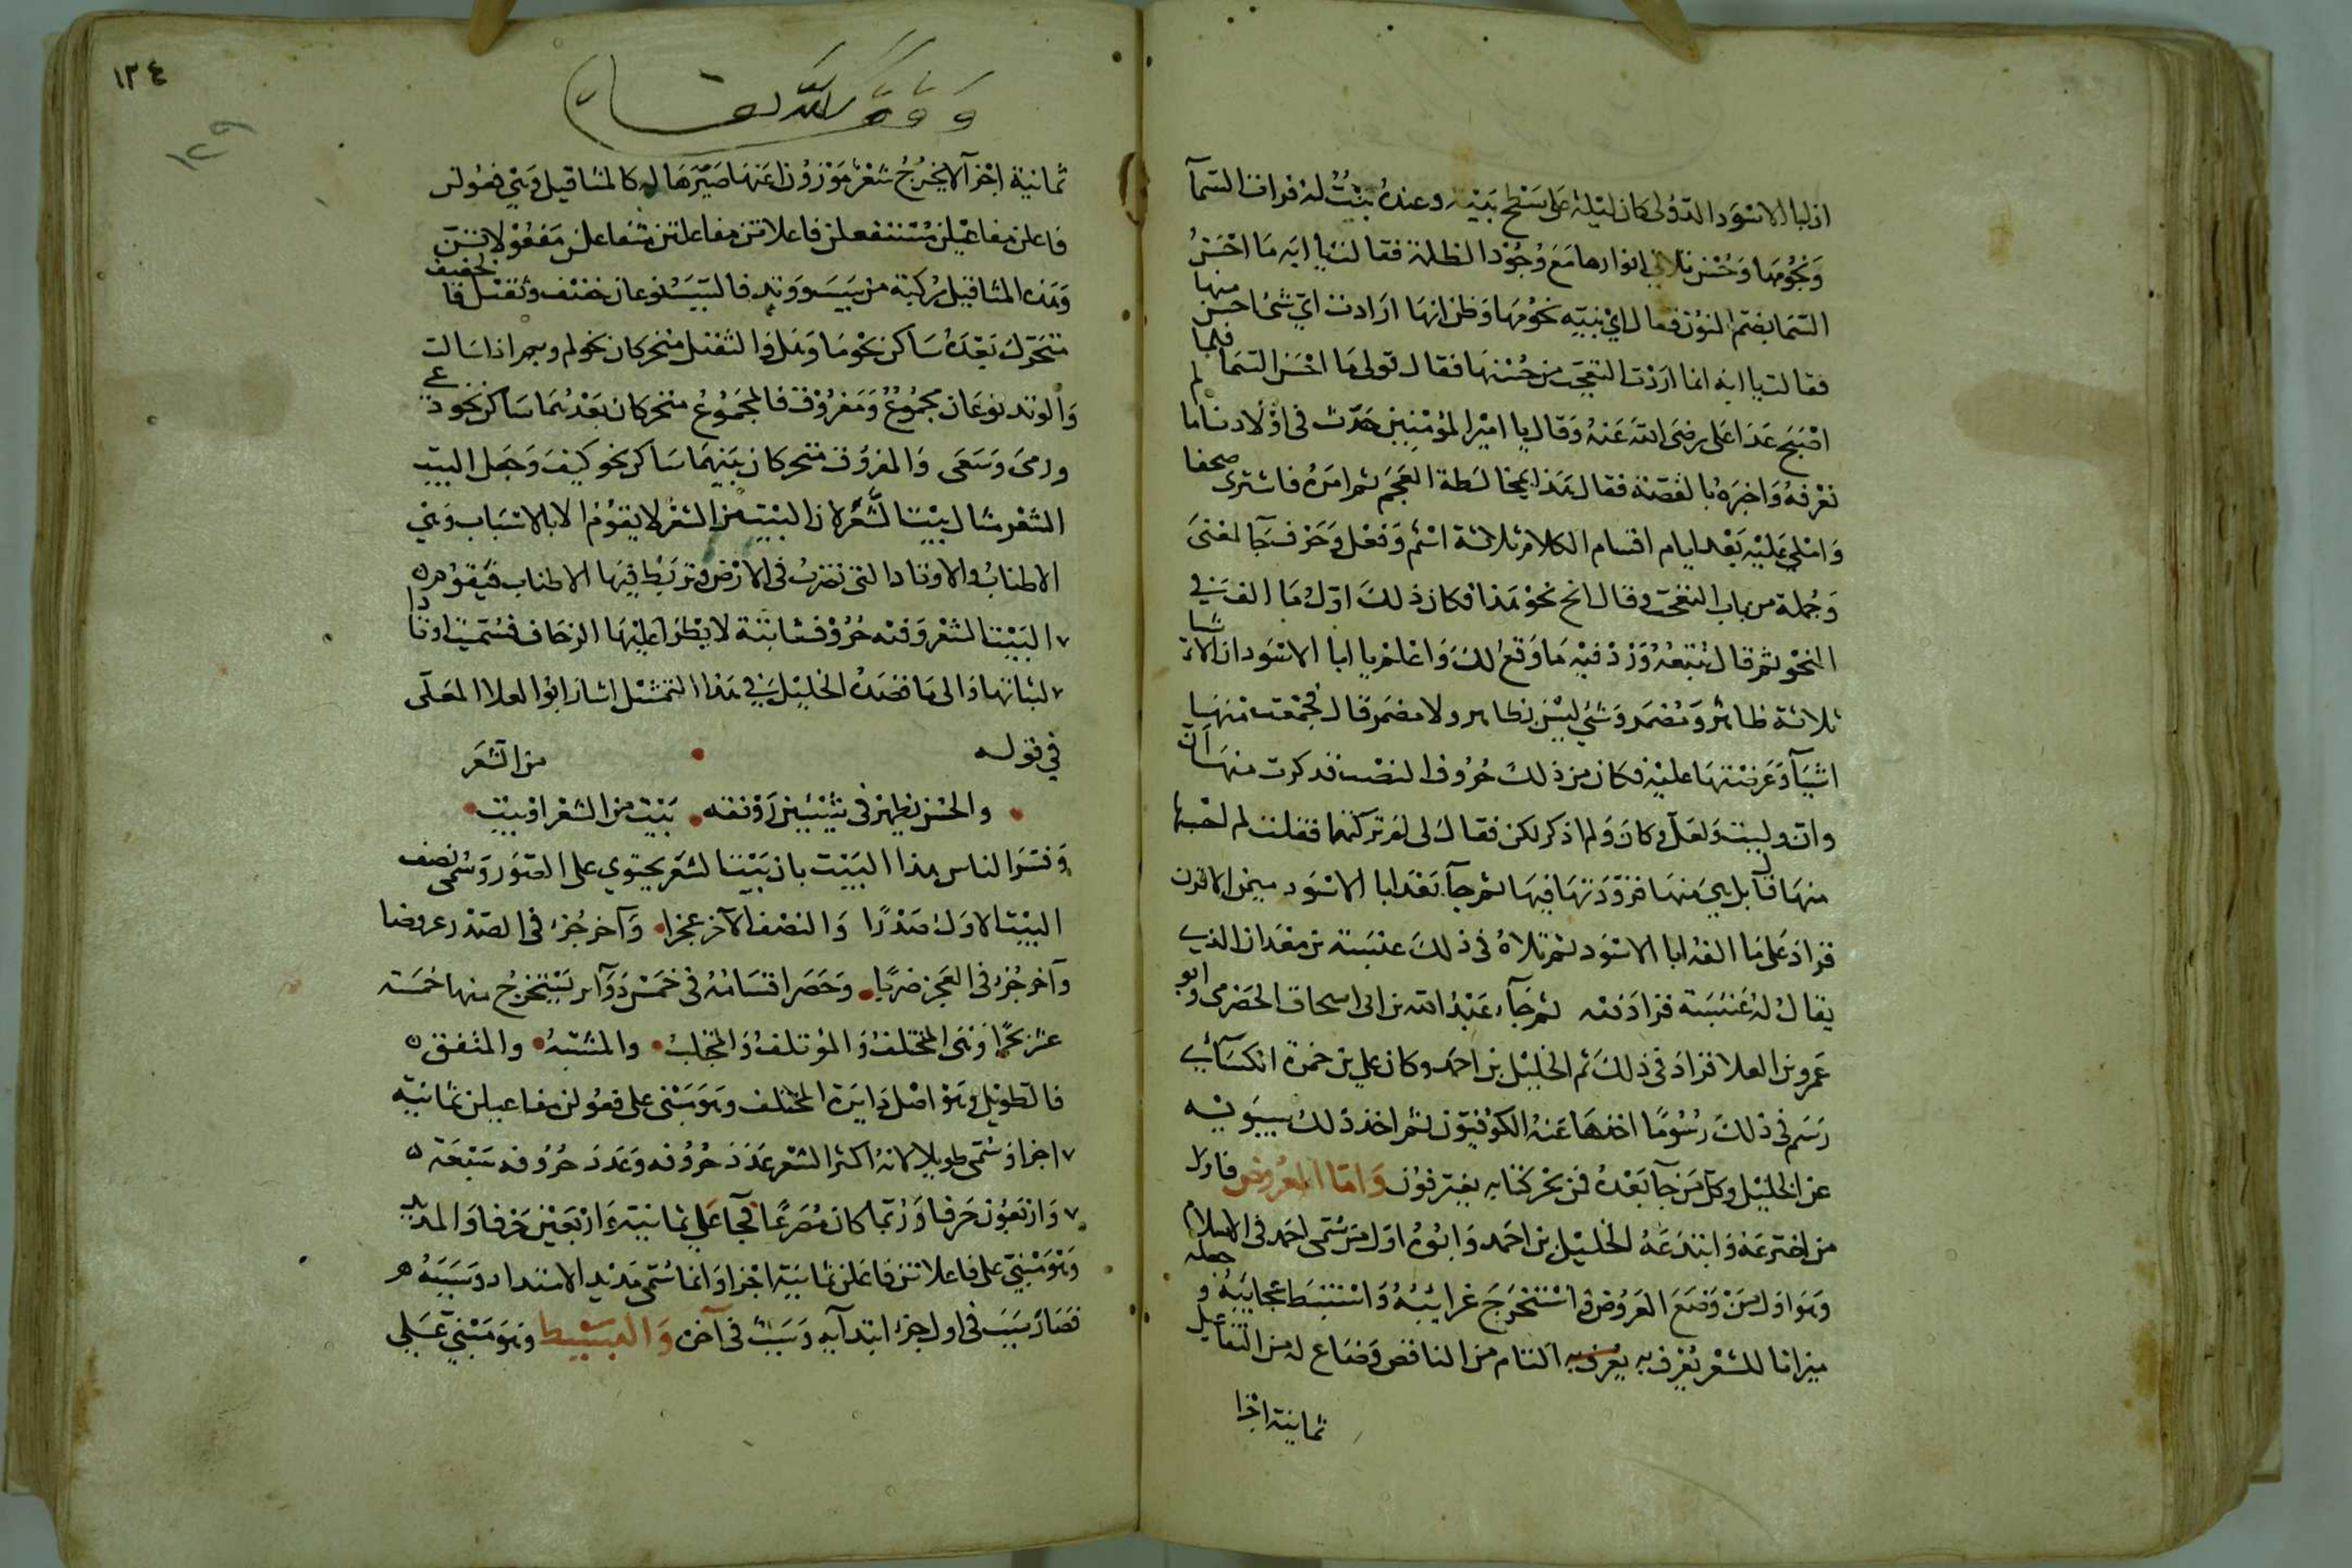 ان ابا الاسود الدؤلى كان ليلة على سطح بيته وعنده بنت له فرات السمآ
ونجومها وحسن تلالي انوارها مع وجود الظلمة فقالت يا ابه ما احسنُ
السما بضم النون فقال اي بنيه نجومها وظن انها ارادت اي شئ احسن منها
فقالت يا ابه انما اردت التعجب من حسنها فقال قولى ما احسن السما فلما
اصبح غدا على على رضى الله عنه وقال يا امير المؤمنين حدث فى اولادنا ما لم
نعرفه واخبره بالقصة فقال هذا بمخالطة العجم ثم امره فاشترى صحفا
واملى عليه بعد ايام اقسام الكلام ثلاثة اسم وفعل وحرف جآ لمعنى
وجملة من باب التعجب وقال انح نحو هذا فكان ذلك اول ما الف في
النحو ثم قال تتبعه وزد فيه ما وقع لك واعلم يا ابا الاسود ان الاشيا
ثلاثة ظاهر ومضمر وشئ ليس بظاهر ولا مضمر قال فجمعت منها
اشيآ وعرضتها عليه فكان من ذلك حروف النصب فذكرت منها ان
وان وليت ولعل وكان ولم اذكر لكن فقال لى لم تركتها فقلت لم احسبها
منها قال بل هي منها فزدتها فيها ثم جآ بعد ابا الاسود ميمن الاقرن
فزاد على ما الفه ابا الاسود ثم تلاه فى ذلك عنبسة بن معدان الذي
يقال له عنبسة فزاد فيه ثم جآ عبد الله بن ابى اسحاق الحضرمى وابو
عمرو بن العلا فزاد فى ذلك ثم الخليل بن احمد وكان علي بن حمزة الكسآئي
رسم فى ذلك رسوما اخذها عنه الكوفيون ثم اخذ ذلك سيبويه
عن الخليل وكل من جآ بعده فمن بحر كتابه يغترفون واما العروض فاول
من اخترعه وابتدعه الخليل بن احمد وابوه اول من سمى احمد فى الاسلام
وهو اول من وضع العروض واستخرج غرائبه واستنبط عجايبه وجعله
ميزانا للشعر يعرف به يعرف به التام من الناقص وصاغ له من التفاعيل
ثمانية اجزا
١٣٤
١٢٩
وقف لله تعالى
ثمانية اجزآ لا يخرج شعر موزون عنها صيرها له كالمثاقيل وهي فعولن
فاعلن مفاعيلن مستفعلن فاعلاتن مفاعلتن متفاعلن مفعولات
وهذه المثاقيل مركبة من سبب ووتد فالسبب نوعان خفيف وثقيل فالخفيف
متحرك بعده ساكن نحو ما وهل والثقيل متحركان نحو لم وبم اذا سالت
والوتد نوعان مجموع ومفروق فالمجموع متحركان بعدهما ساكن نحو دعى
ورمى وسعى والمفروق متحركان بينهما ساكن نحو كيف وجعل البيت
الشعر مثال بيت الشعر لان البيت من الشعر لا يقوم الا بالاسباب وهي
الاطناب والاوتاد التى تضرب فى الارض وتربط فيها الاطناب فيقوم
البيت الشعر وفيه حروف ثابتة لا يطرا عليها الزحاف فسميت اوتادا
لثباتها والى ما قصده الخليل في هذا التمثيل اشار ابو العلا المعلى
في قوله من الشعر
والحسن يظهر فى بيتين رونقه بيت من الشعر او بيت
وفسر الناس هذا البيت بان بيت الشعر يحتوي على الصور وسمى نصف
البيت الاول صدرا والنصف الآخر عجزا وآخر جزء فى الصدر عروضا
وآخر جزء فى العجز ضربا وحصر اقسامه فى خمس دوآير يستخرج منها خمسة
عشر بحرا وهى المختلف والمؤتلف والمجتلب والمشتبه والمتفق
فالطويل وهو اصل دايرة المختلف وهو مبنى على فعولن مفاعيلن ثمانية
اجزا وسمى طويلا لانه اكثر الشعر عدد حروفه وعدد حروفه سبعة
واربعون حرفا وربما كان مصرعا فجآ على ثمانية واربعين حرفا والمديد
وهو مبنى على فاعلاتن فاعلن ثمانية اجزا وانما سمى مديد الامتداد سببه
فصار سبب فى اول جزء ابتدآيه وسبب فى آخره والبسيط وهو مبني على